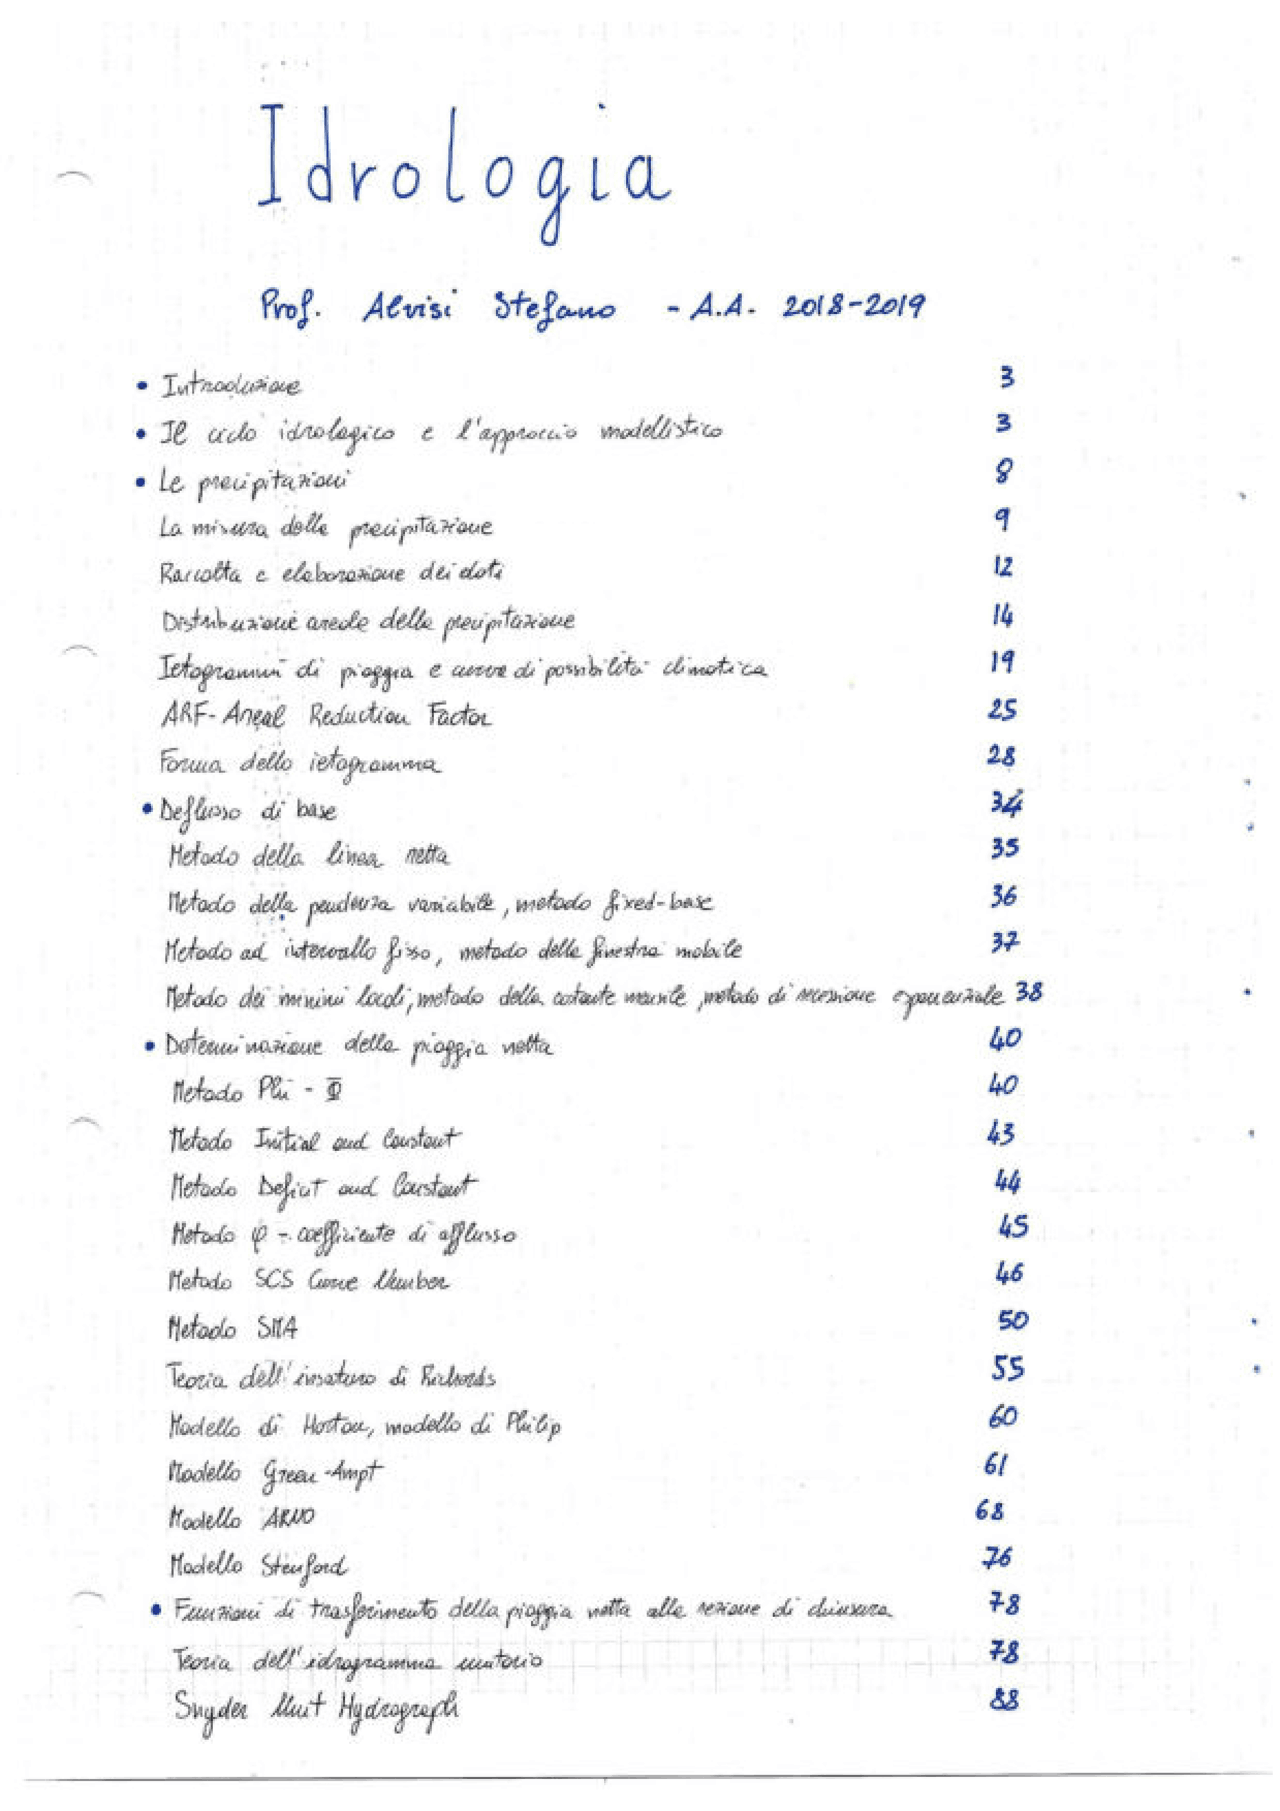 Idrologia
Prof. Alvisi Stefano - A.A. 2018-2019
• Introduzione 3
• Il ciclo idrologico e l'approccio modellistico 3
• Le precipitazioni 8
La misura delle precipitazione 9
Raccolta e elaborazione dei dati 12
Distribuzione areale delle precipitazione 14
Ietogrammi di pioggia e curve di possibilità climatica 19
ARF-Areal Reduction Factor 25
Forma dello ietogramma 28
• Deflusso di base 34
Metodo della linea retta 35
Metodo della pendenza variabile, metodo fixed-base 36
Metodo ad intervallo fisso, metodo della finestra mobile 37
Metodo dei minimi locali, metodo della costante mensile, metodo di recessione esponenziale 38
• Determinazione della pioggia netta 40
Metodo Phi - Φ 40
Metodo Initial and Constant 43
Metodo Deficit and Constant 44
Metodo φ - coefficiente di afflusso 45
Metodo SCS Curve Number 46
Metodo SMA 50
Teoria dell'insaturo di Richards 55
Modello di Horton, modello di Philip 60
Modello Green-Ampt 61
Modello ARNO 68
Modello Stanford 76
• Funzioni di trasferimento della pioggia netta alla sezione di chiusura 78
Teoria dell'idrogramma unitario 78
Snyder Unit Hydrograph 88